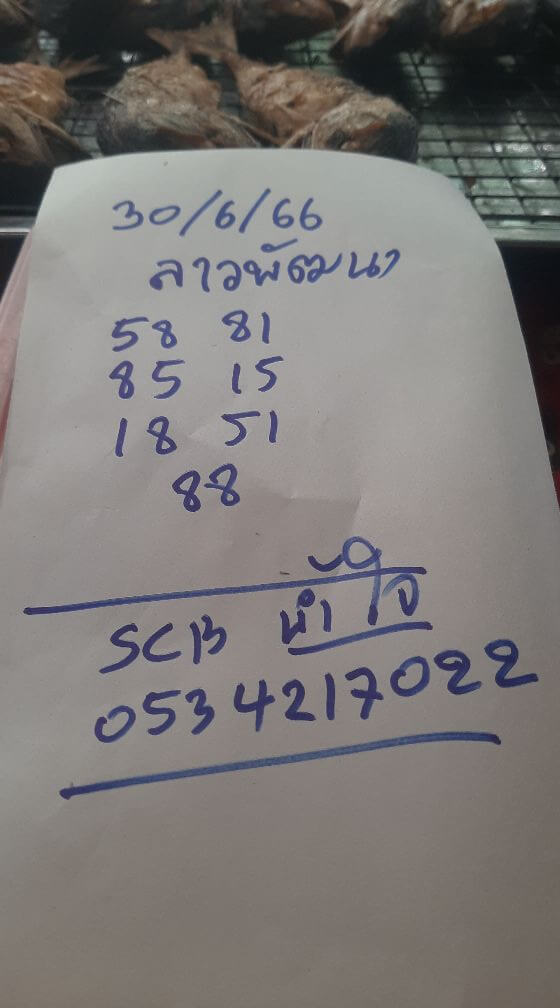 30/6/66
ลาวพัฒนา
58 81
85 15
18 51
88
SCB น้ำใจ
0534217022